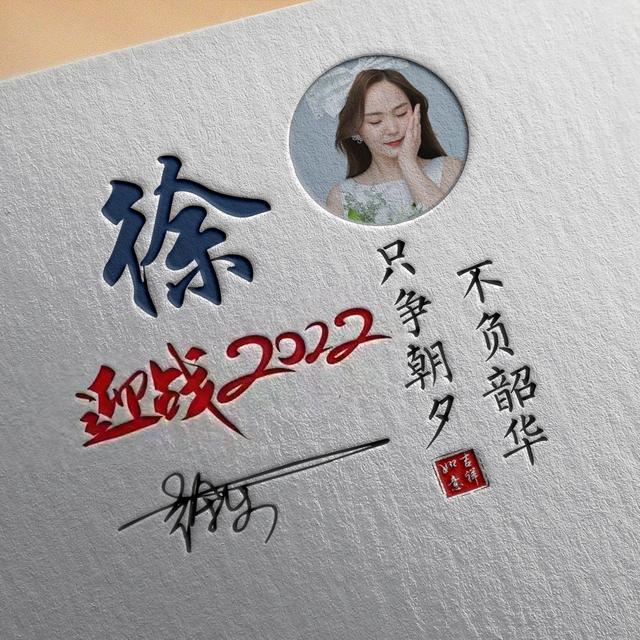 徐
迎战2022
只争朝夕
不负韶华
吉祥
如意